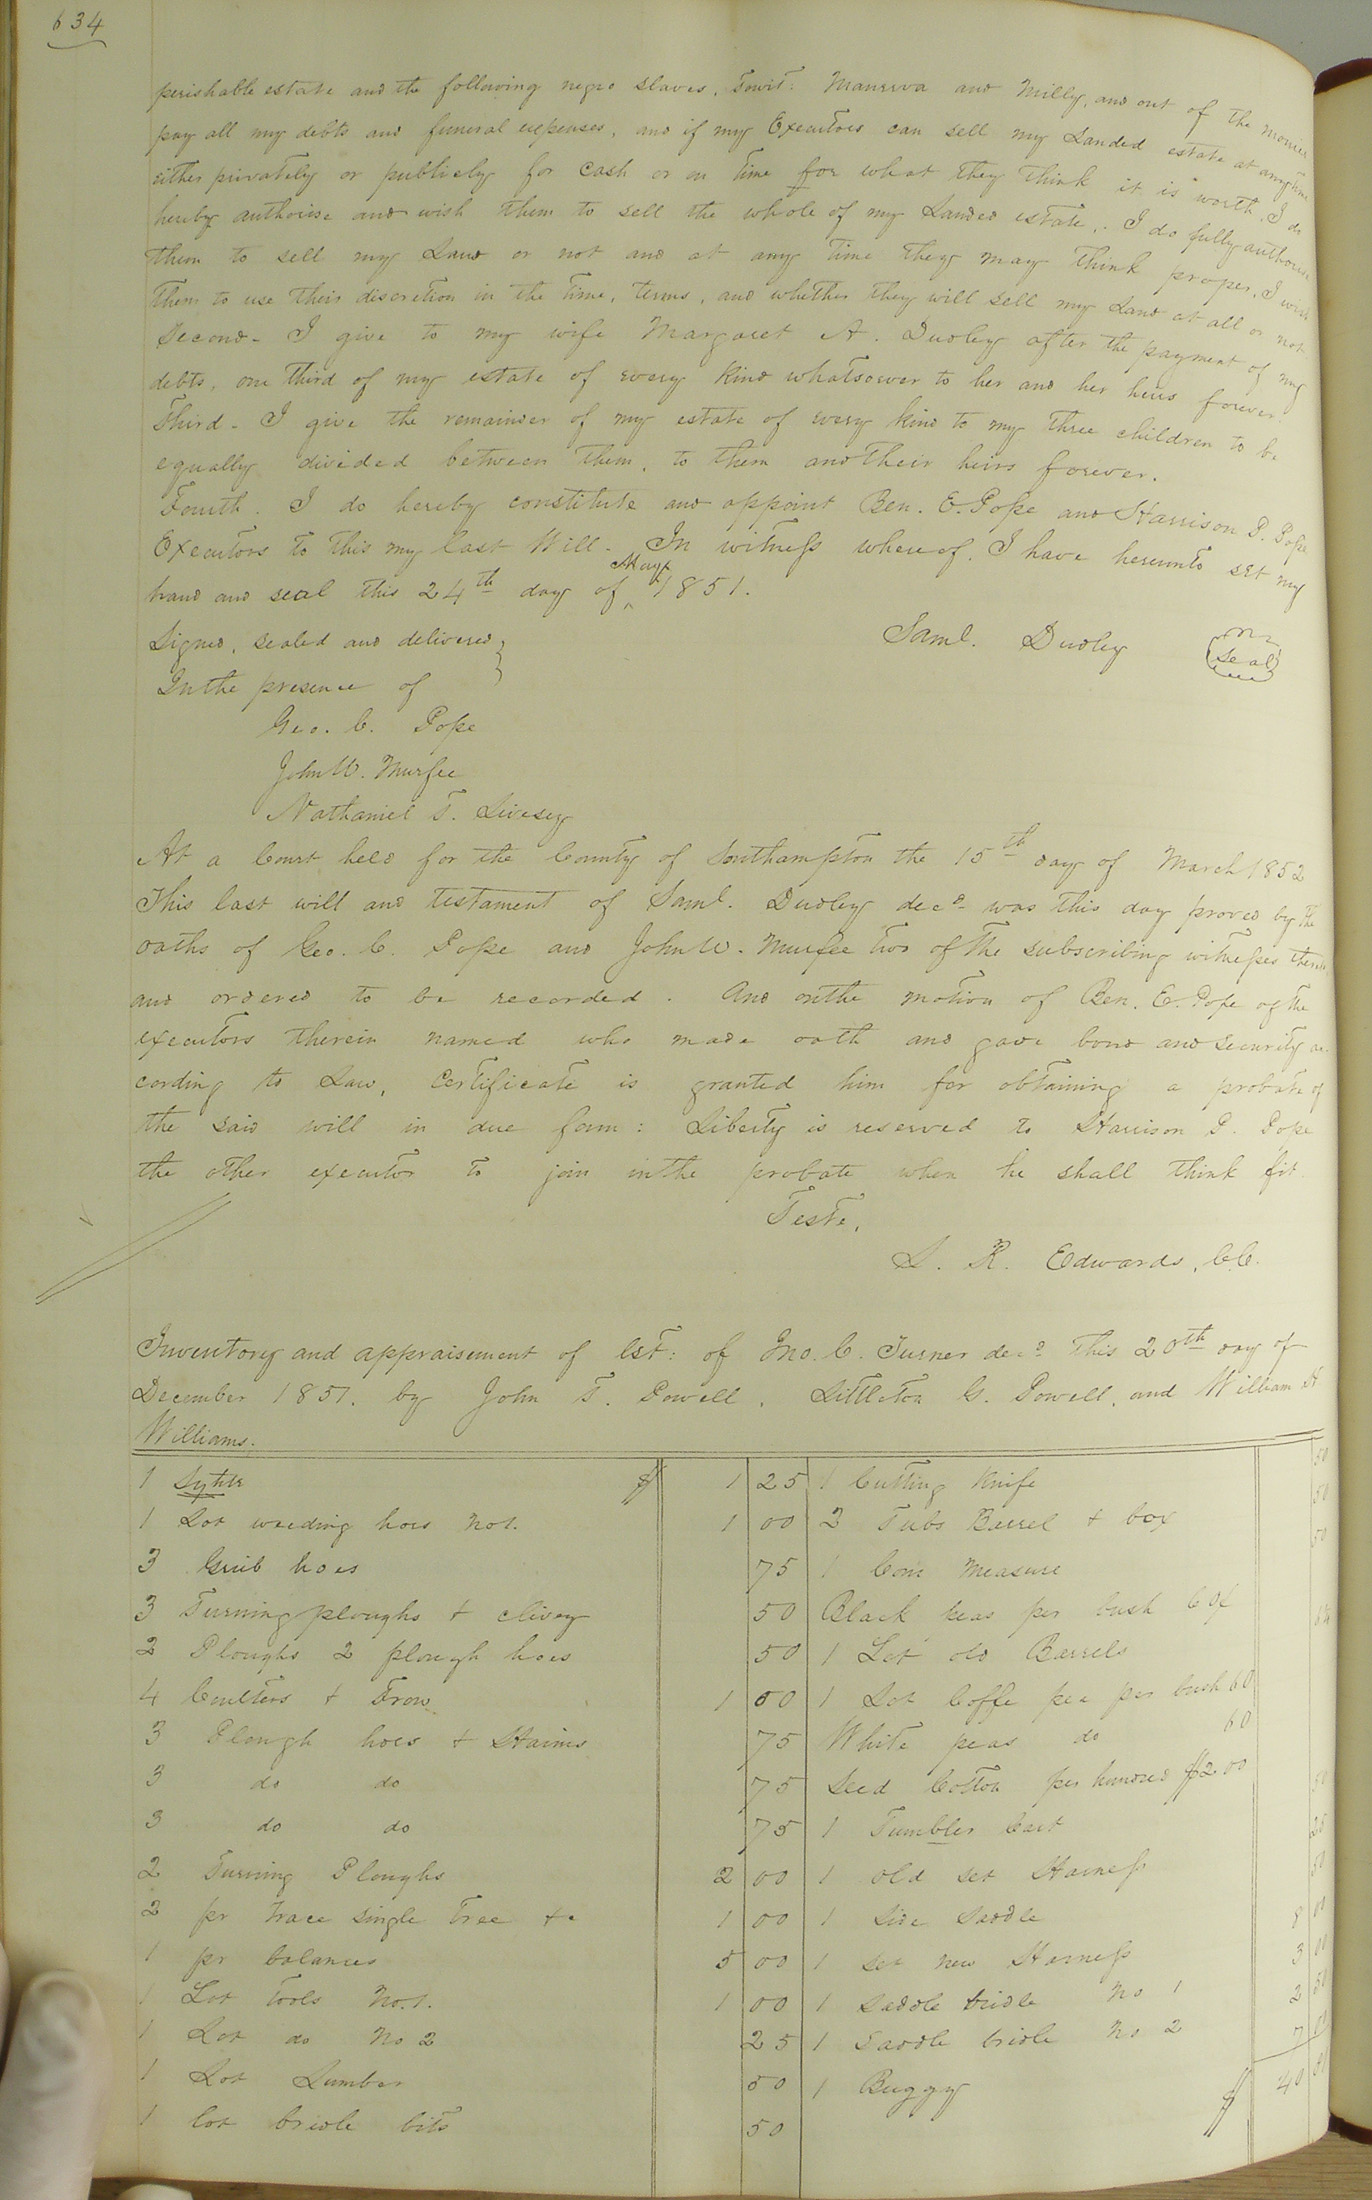 634
perishable estate and the following negro slaves, Towit: Manerva and Milly, and out of the monies
pay all my debts and funeral expenses, and if my Executors can sell my Landed estate at anytime
either privately or publicly for cash or on time for what they think it is worth, I do
hereby authorise and wish them to sell the whole of my Landed estate. I do fully authorise
them to sell my Land or not and at any time they may think proper, I wish
them to use their discretion in the time, terms, and whether they will sell my Land at all or not
Second - I give to my wife Margaret A. Dudley after the payment of my
debts, one third of my estate of every kind whatsoever to her and her heirs forever
Third - I give the remainder of my estate of every kind to my three children to be
equally divided between them, to them and their heirs forever.
Fourth. I do hereby constitute and appoint Ben. E. Pope and Harrison P. Pope
Executors to this my last Will. In witness whereof, I have hereunto set my
hand and seal this 24th day of May 1851.
Signed, sealed and delivered Saml. Dudley (Seal)
In the presence of
Geo. C. Pope
John W. Murfee
Nathaniel T. Livesey
At a Court held for the County of Southampton the 15th day of March 1852
This last will and testament of Saml. Dudley decd was this day proved by the
oaths of Geo. C. Pope and John W. Murfee two of the subscribing witnesses thereto
and ordered to be recorded. And on the motion of Ben. E. Pope of the
executors therein named who made oath and gave bond and security ac
cording to Law, Certificate is granted him for obtaining a probate of
the said will in due form: Liberty is reserved to Harrison P. Pope
the other executor to join in the probate when he shall think fit.
Teste,
L. R. Edwards, C.C.
Inventory and appraisement of Est: of Jno. C. Turner decd this 20th day of
December 1851. by John T. Powell, Littleton G. Powell, and William H
Williams.
1 Sythe $ 1 25 1 Cutting Knife 50
1 Lot weeding hoes No1. 1 00 2 Tubs Barrel & box 50
3 Grub hoes 75 1 Corn Measure 50
3 Turning ploughs & clivey 50 Black peas per bush 60¢
2 Ploughs 2 plough hoes 50 1 Lot old Barrels
4 Coulters & Frow 1 00 1 Lot Coffe pea per bush 60
3 Plough hoes & Haims 75 White peas do 60
3 do do 75 Seed Cotton per hundred $2 00
3 do do 75 1 Tumbler Cart
2 Turning Ploughs 2 00 1 old set Harness
2 pr trace single tree &c 1 00 1 Side Saddle
1 pr balances 5 00 1 set new Harness 8 00
1 Lot Tools No.1. 1 00 1 Saddle bridle No 1 3 00
1 Lot do No 2 25 1 Saddle bridle No 2 2 50
1 Lot Lumber 50 1 Buggy $ 40
1 lot bridle bits 50